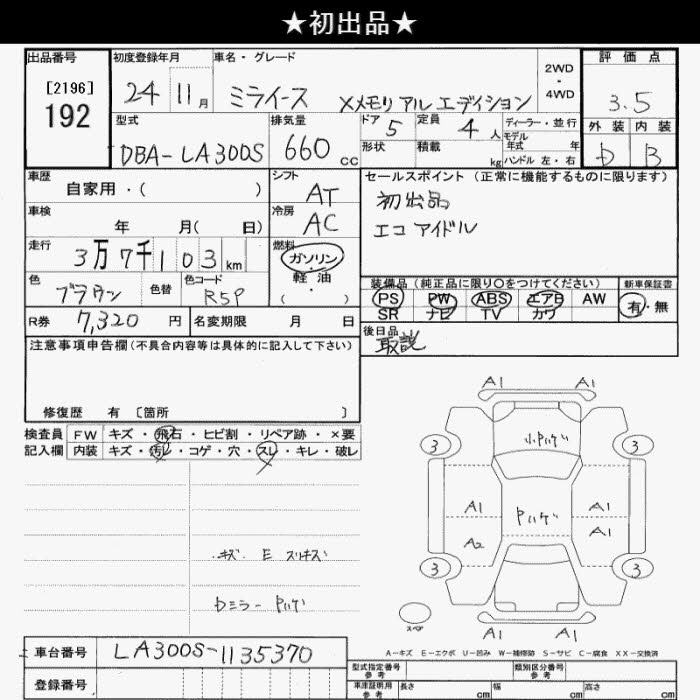 ★初出品★
出品番号
[2196]
192
初度登録年月
24 11月
車名・グレード
ミライース Xメモリアルエディション
2WD
・
4WD
評価点
3.5
外装 内装
D B
型式
DBA-LA300S
排気量
660 cc
ドア 5
形状
定員 4 人
積載 kg
ディーラー・並行
モデル
年式 年
ハンドル 左・右
車歴
自家用・( )
シフト
AT
車検
年 月( 日)
冷房
AC
走行
3万7千103km
燃料
ガソリン
・
軽油
・( )
色
ブラウン
色替
色コード
R59
R券 7,320 円
名変期限 月 日
セールスポイント(正常に機能するものに限ります)
初出品
エコアイドル
装備品(純正品に限り○をつけてください)
PS PW ABS エアB AW
SR ナビ TV カワ
新車保証書
有・無
後日品
取説
注意事項申告欄(不具合内容等は具体的に記入して下さい)
修復歴 有 〔箇所 〕
検査員
記入欄
FW キズ・飛石・ヒビ割・リペア跡・×要
内装 キズ・汚レ・コゲ・穴・スレ・キレ・破レ
キズ E スリキズ
Dミラー Pハゲ
A1 A1
3 小Pハゲ 3
A1 A1
Pハゲ
A2 A1
3 3
スペア
A1 A1
A-キズ E-エクボ U-凹み W-補修跡 S-サビ C-腐食 XX-交換済
車台番号 LA300S-1135370
登録番号
型式指定番号
参考
類別区分番号
参考
車庫証明用
参考
長さ cm 幅 cm 高さ cm